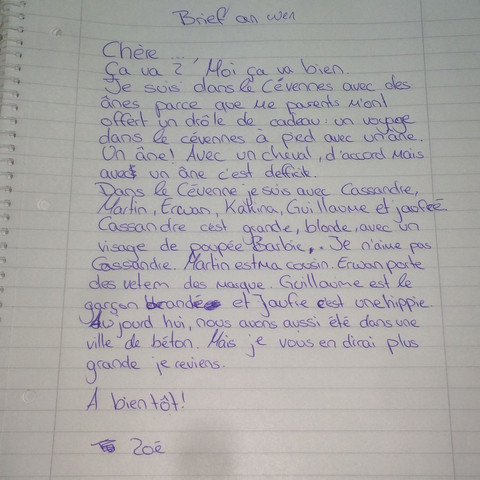 Brief an wen
Chère ...
Ça va ? Moi ça va bien.
Je suis dans le Cévennes avec des
ânes parce que me parents m'ont
offert un drôle de cadeau: un voyage
dans le cévennes à pied avec un âne.
Un âne! Avec un cheval, d'accord mais
avec un âne c'est defficile.
Dans le Cévenne je suis avec Cassandre,
Martin, Erwan, Katrina, Guillaume et jaofeé.
Cassandre cest grande, blonde, avec un
visage de poupée Barbie,. Je n'aime pas
Cassandre. Martin est ma cousin. Erwan porte
des vetem des marque. Guillaume est le
garçon et Jaufie c'est une hippie.
Au jourd hui, nous avons aussi été dans une
ville de béton. Mais je vous en dirai plus
grande je reviens.
A bientôt!
Zoé